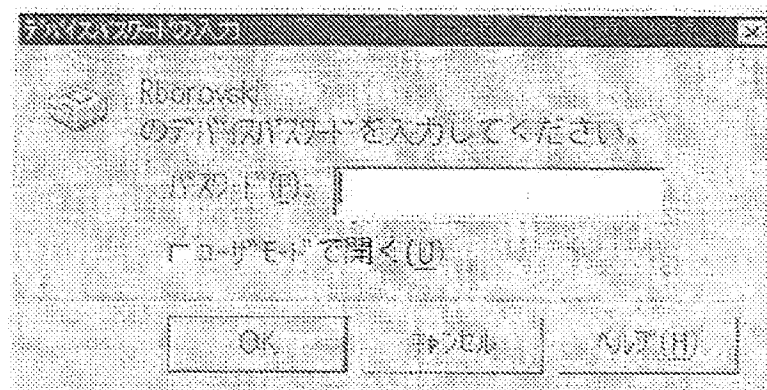 デバイスパスワードの入力
Rborovski
のデバイスパスワードを入力してください。
パスワード(P):
ユーザモードで開く(U)
OK
キャンセル
ヘルプ(H)